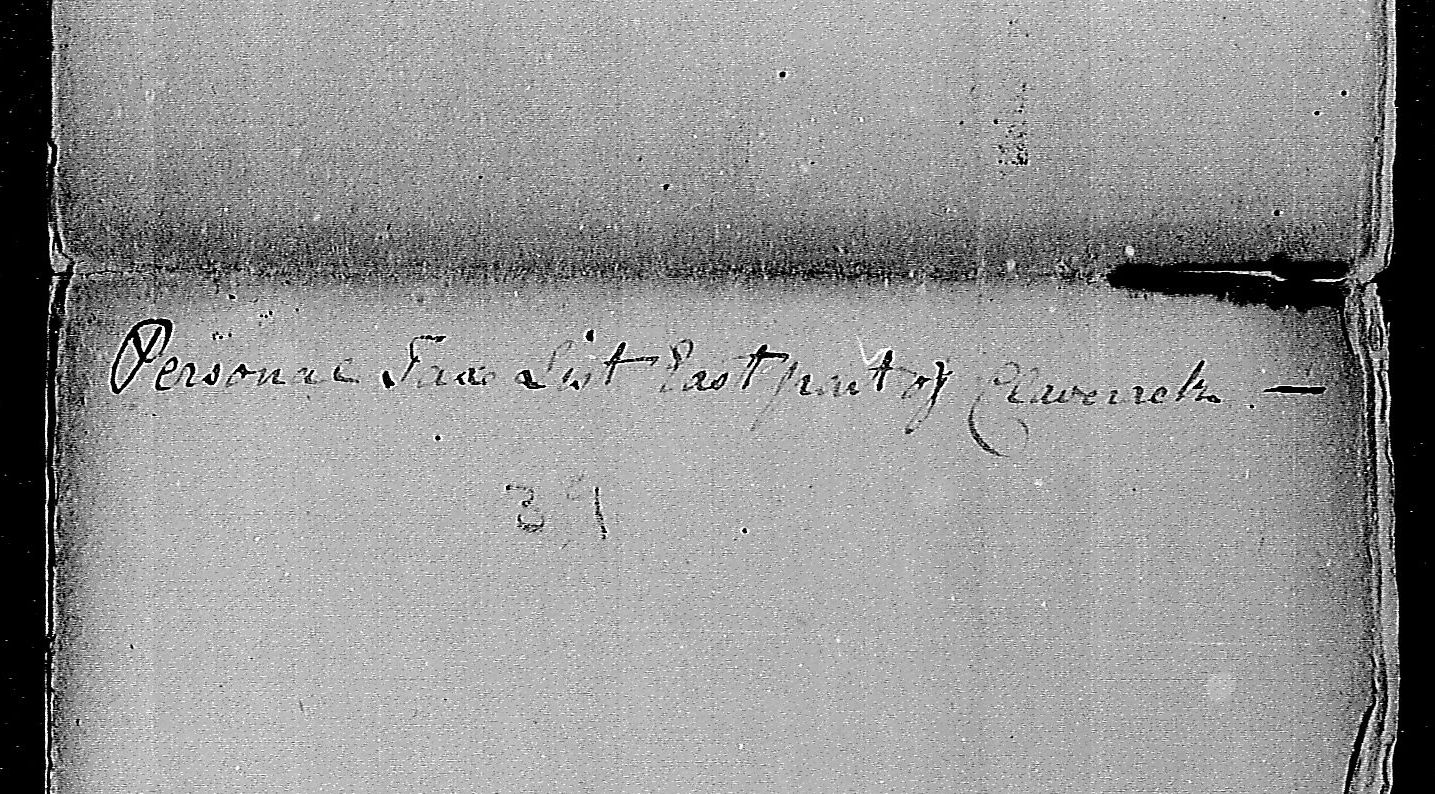 Personal Tax List East part of Claverack. —
39